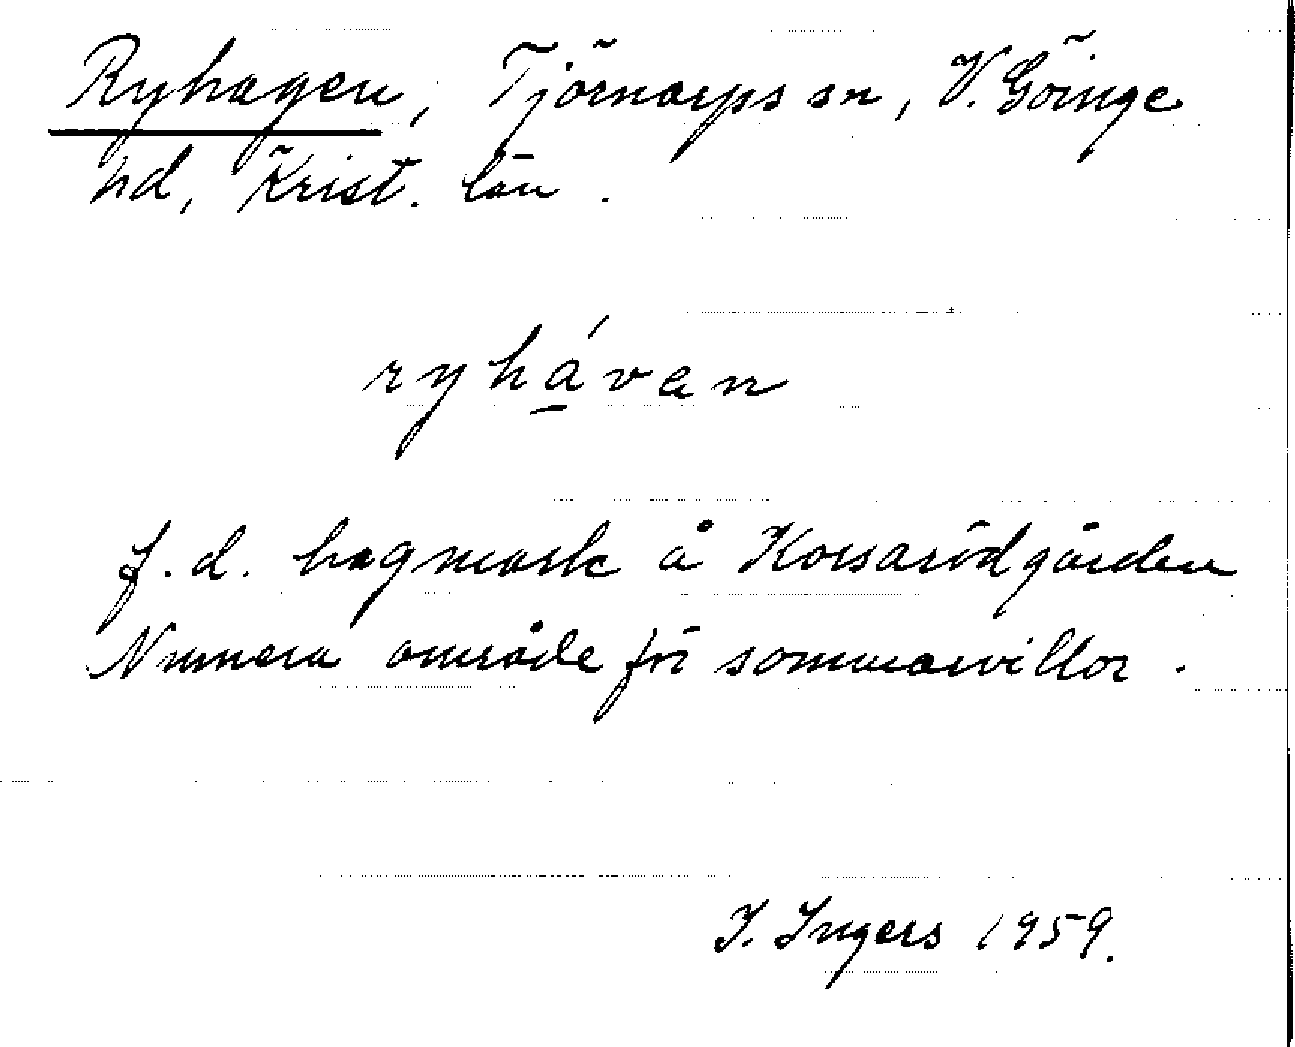 Ryhagen, Tjörnarps sn, V. Göinge
hd, Krist. län.
ryhávan
f. d. hagmark å Korsarödgården
Numera område för sommarvillor.
I. Ingers 1959.